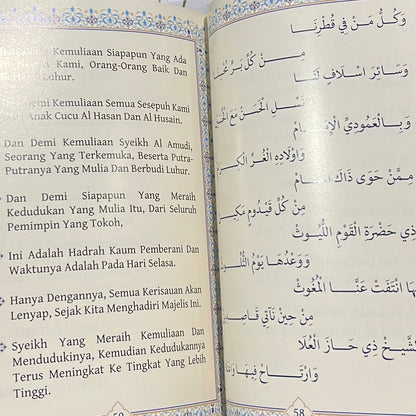 وَكُلُّ مَنْ فِي قُطْرِنَا
مِنْ كُلِّ بَرٍّ
وَسَائِرِ اسْلَافٍ لَنَا
نَسْلِ الْحَسَنْ مَعَ
وَبِالْعَمُودِيِّ
وَاوْلَادِهِ الْغُرِّ
مِمَّنْ حَوَى ذَاكَ
مِنْ كُلِّ قَيْدُومٍ
ذِي حَضْرَةِ الْقَوْمِ اللُّيُوثْ
وَوَعْدُهَا يَوْمُ
انْتَفَتْ عَنَّا الْمُغُوثْ
مِنْ حِيْنَ نَأْتِي
الشَّيْخُ ذِي حَازَ الْعُلَا
وَارْتَاحَ فِيهَا
58
Dan Demi Kemuliaan Siapapun Yang Ada
Kami, Orang-Orang Baik Dan
Luhur.
Demi Kemuliaan Semua Sesepuh Kami
Anak Cucu Al Hasan Dan Al Husain.
Dan Demi Kemuliaan Syeikh Al Amudi,
Seorang Yang Terkemuka, Beserta Putra-
Putranya Yang Mulia Dan Berbudi Luhur.
Dan Demi Siapapun Yang Meraih
Kedudukan Yang Mulia Itu, Dari Seluruh
Pemimpin Yang Tokoh,
Ini Adalah Hadrah Kaum Pemberani Dan
Waktunya Adalah Pada Hari Selasa.
Hanya Dengannya, Semua Kerisauan Akan
Lenyap, Sejak Kita Menghadiri Majelis Ini.
Syeikh Yang Meraih Kemuliaan Dan
Mendudukinya, Kemudian Kedudukannya
Terus Meningkat Ke Tingkat Yang Lebih
Tinggi.
59